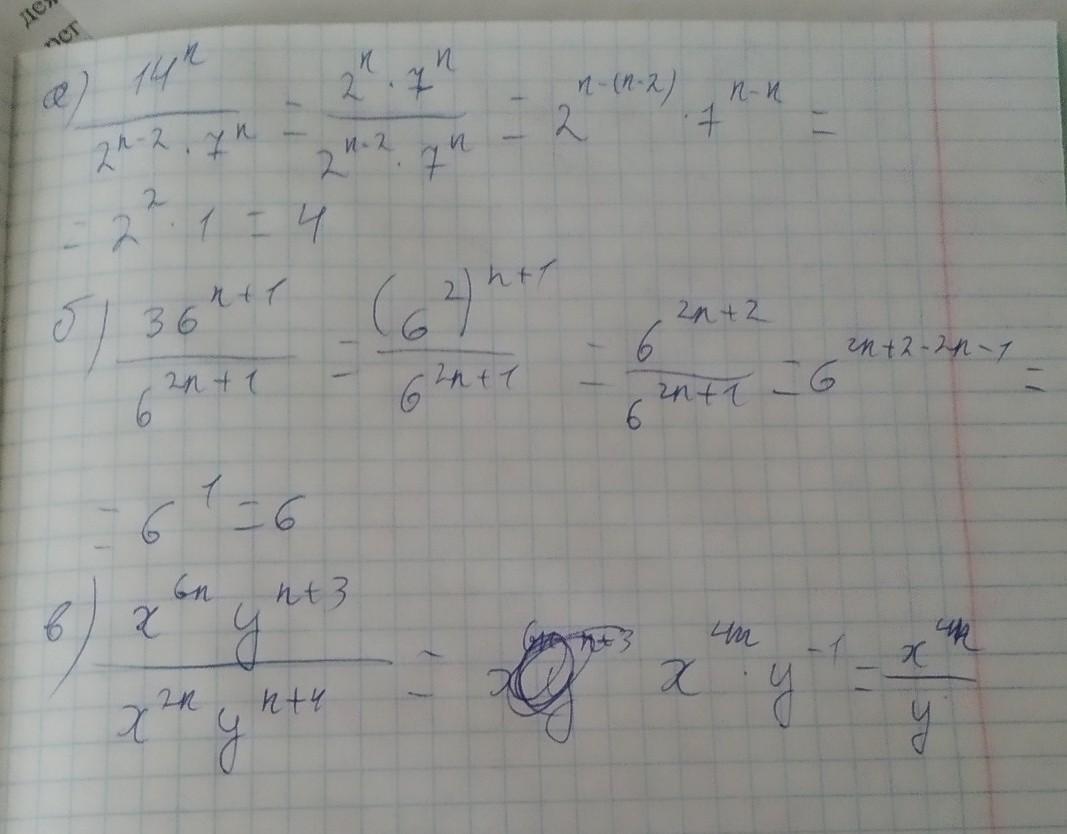 дея
рет
а) 14^n / (2^{n-2} · 7^n) = (2^n · 7^n) / (2^{n-2} · 7^n) = 2^{n-(n-2)} · 7^{n-n} =
= 2^2 · 1 = 4
б) 36^{n+1} / 6^{2n+1} = (6^2)^{n+1} / 6^{2n+1} = 6^{2n+2} / 6^{2n+1} = 6^{2n+2-2n-1} =
= 6^1 = 6
в) (x^{6n} y^{n+3}) / (x^{2n} y^{n+4}) = x^{4n} · y^{-1} = x^{4n} / y